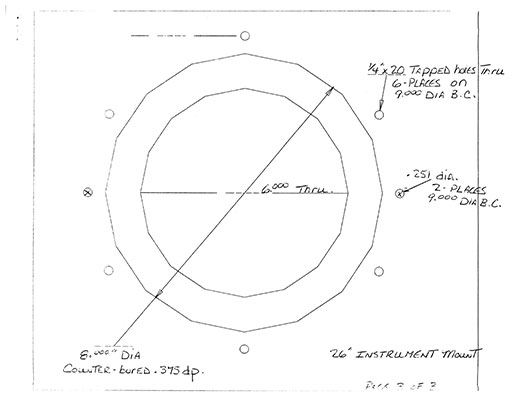 1/4" x 20 Tapped holes Thru
6-Places on
9.000 Dia B.C.
6.000 Thru.
.251 dia.
2-Places
9.000 Dia B.C.
8.000" Dia
Counter-bored .375 dp.
26" Instrument Mount
Page 3 of 3